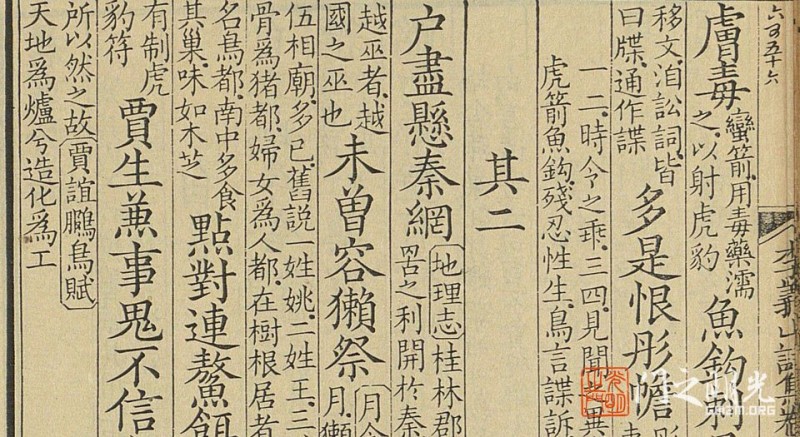 六百五十六
李義山詩集卷
膚毒
蠻箭用毒藥濡
之以射虎豹
魚鉤刺
移文洎訟詞皆
曰牒通作諜
多是恨彤幨
一二時令之乖三四見聞之異
虎箭魚鉤殘忍性生鳥言諜訴
其二
户盡懸秦網
地理志桂林郡
罟之利開於秦
越巫者越
國之巫也
未曾容獺祭
月令
月獺
伍相廟多已舊說一姓姚二姓王三
骨爲猪都婦女爲人都在樹根居者
名鳥都南中多食
其巢味如木芝
點對連鰲餌
有制虎
豹符
賈生兼事鬼不信
所以然之故賈誼鵩鳥賦
天地爲爐兮造化爲工